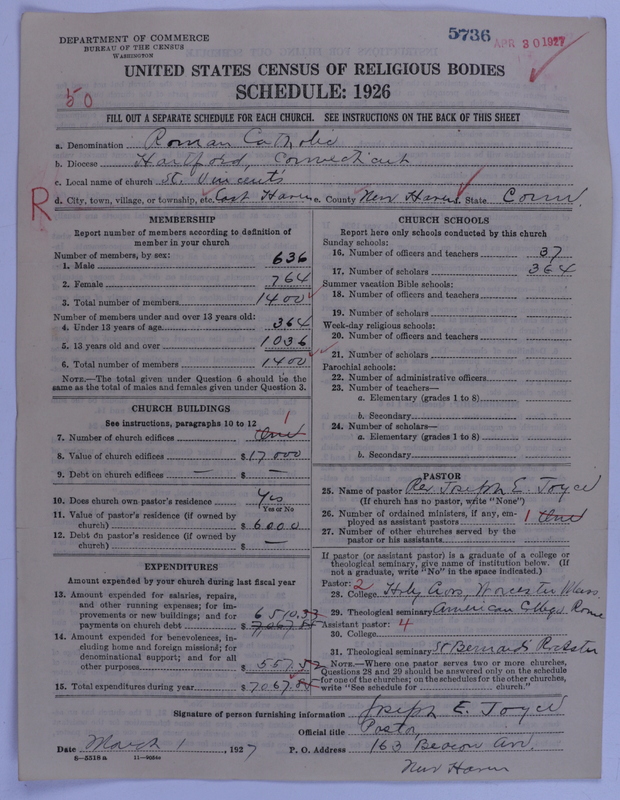 DEPARTMENT OF COMMERCE
BUREAU OF THE CENSUS
WASHINGTON
5736 APR 20 1927
UNITED STATES CENSUS OF RELIGIOUS BODIES
SCHEDULE: 1926
50
FILL OUT A SEPARATE SCHEDULE FOR EACH CHURCH. SEE INSTRUCTIONS ON THE BACK OF THIS SHEET
a. Denomination Roman Catholic
b. Diocese Hartford, Connecticut
c. Local name of church St. Vincent's
R
d. City, town, village, or township, etc. East Haven e. County New Haven f. State Conn.
MEMBERSHIP
Report number of members according to definition of member in your church
Number of members, by sex:
1. Male 636
2. Female 764
3. Total number of members 1400
Number of members under and over 13 years old:
4. Under 13 years of age 364
5. 13 years old and over 1036
6. Total number of members 1400
NOTE.—The total given under Question 6 should be the
same as the total of males and females given under Question 3.
CHURCH BUILDINGS
See instructions, paragraphs 10 to 12
7. Number of church edifices One 1
8. Value of church edifices $17000
9. Debt on church edifices — $ —
10. Does church own pastor's residence Yes
Yes or No
11. Value of pastor's residence (if owned by
church) $6000
12. Debt on pastor's residence (if owned by
church) $ —
EXPENDITURES
Amount expended by your church during last fiscal year
13. Amount expended for salaries, repairs,
and other running expenses; for im-
provements or new buildings; and for
payments on church debt 6510.33
$ 7,067.85
14. Amount expended for benevolences, in-
cluding home and foreign missions; for
denominational support; and for all
other purposes $ 557.52
15. Total expenditures during year $ 7067.85
CHURCH SCHOOLS
Report here only schools conducted by this church
Sunday schools:
16. Number of officers and teachers 37
17. Number of scholars 364
Summer vacation Bible schools:
18. Number of officers and teachers
19. Number of scholars
Week-day religious schools:
20. Number of officers and teachers
21. Number of scholars
Parochial schools:
22. Number of administrative officers
23. Number of teachers—
a. Elementary (grades 1 to 8)
b. Secondary
24. Number of scholars—
a. Elementary (grades 1 to 8)
b. Secondary
PASTOR
25. Name of pastor Rev. Joseph E. Joyce
(If church has no pastor, write "None")
26. Number of ordained ministers, if any, em-
ployed as assistant pastors 1 One
27. Number of other churches served by the
pastor or his assistants
If pastor (or assistant pastor) is a graduate of a college or
theological seminary, give name of institution below. (If
not a graduate, write "No" in the space indicated.)
Pastor: 2
28. College Holy Cross, Worcester Mass.
29. Theological seminary American College Rome
Assistant pastor: 4
30. College
31. Theological seminary St Bernard's Rochester
NOTE.—Where one pastor serves two or more churches,
Questions 28 and 29 should be answered only on the schedule
for one of the churches; on the schedules for the other churches,
write "See schedule for church."
Signature of person furnishing information Joseph E. Joyce
Official title Pastor,
Date March 1, 1927 P. O. Address 163 Beacon Av.
New Haven
8—5518 a